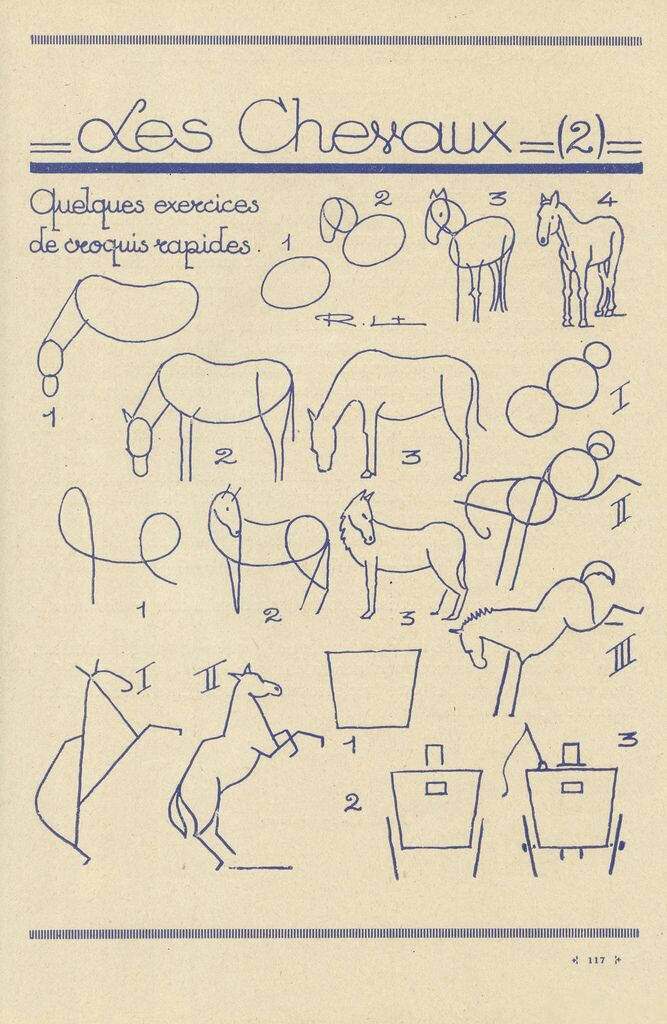 Les Chevaux (2)
Quelques exercices
de croquis rapides.
1 2 3 4
R. Lt
1 2 3
I
II
III
1 2 3
I II
1
2
3
117